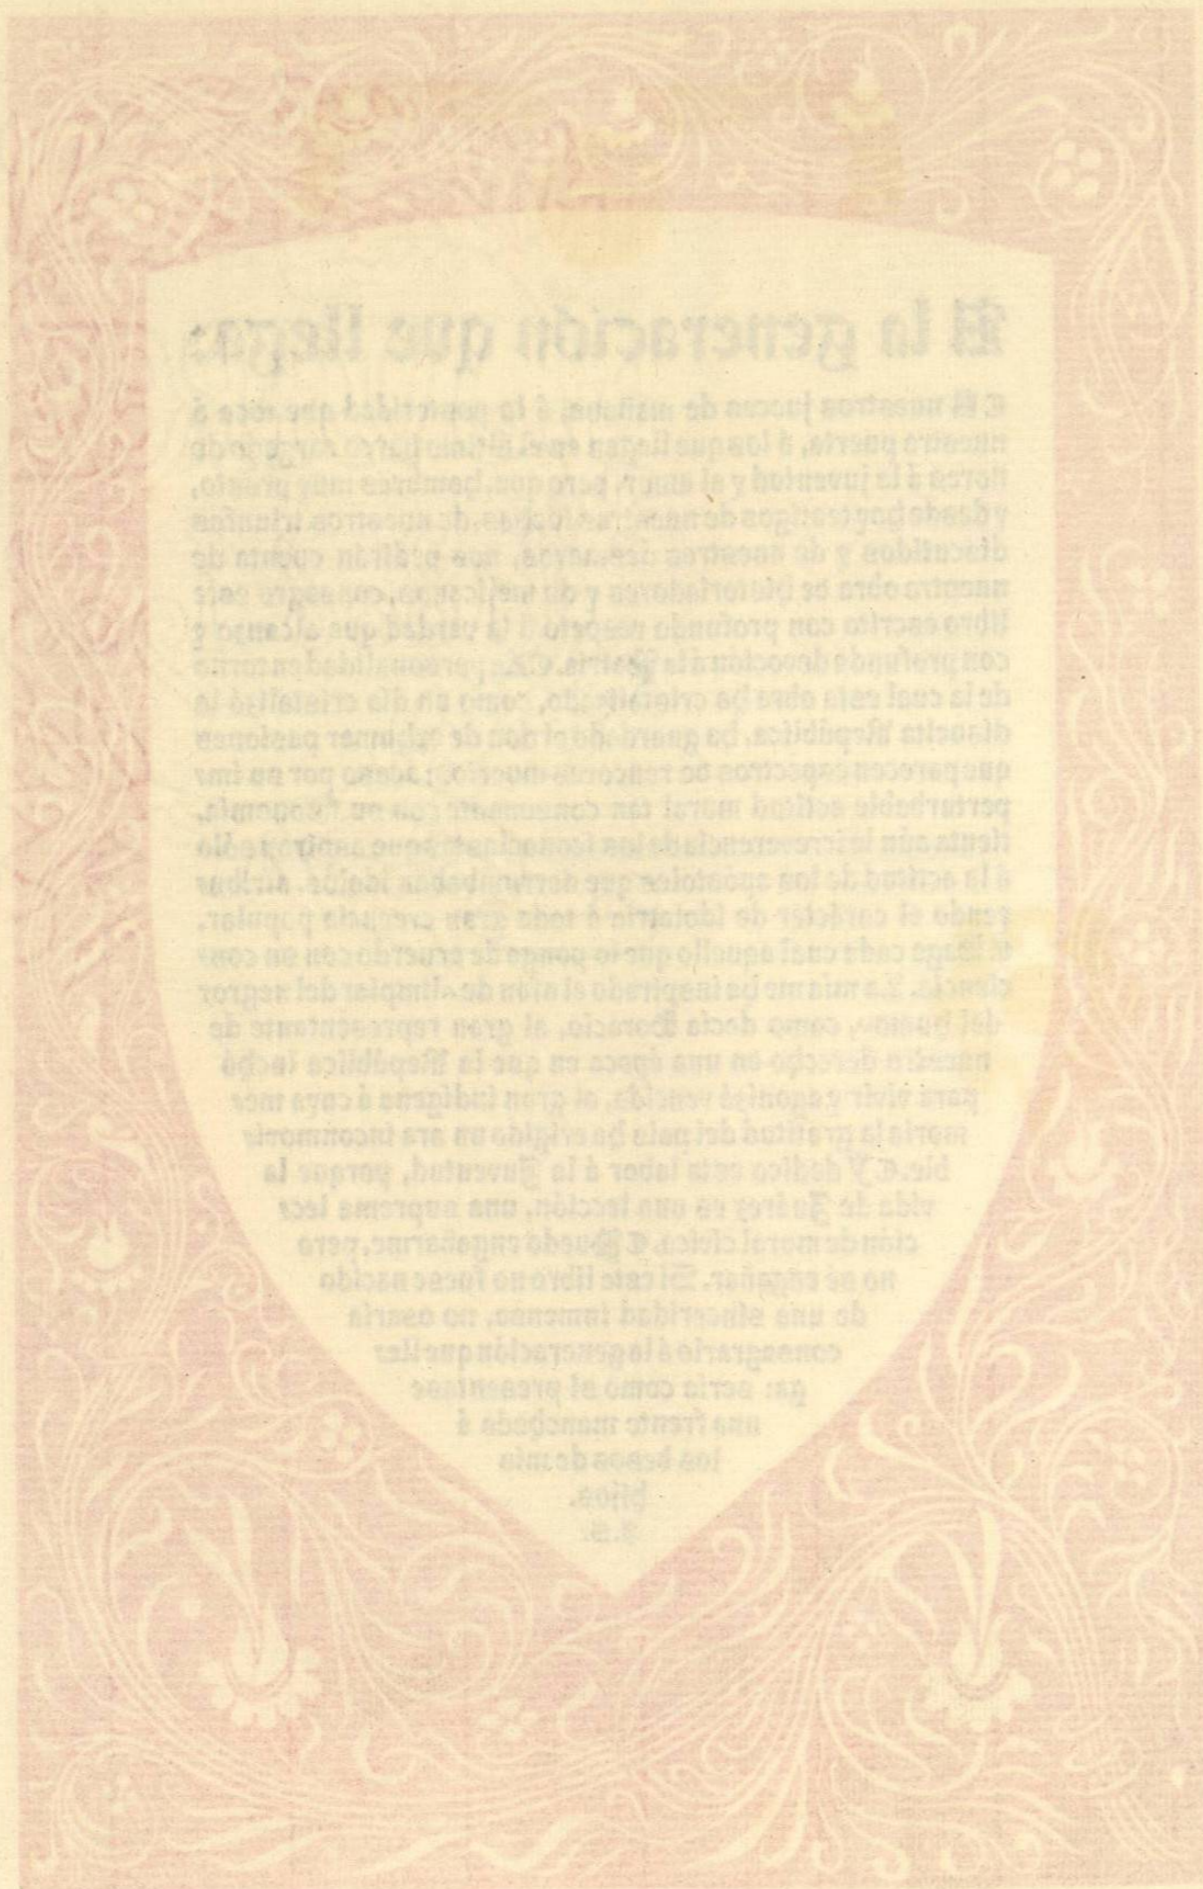 A la generación que llega:
A nuestros jueces de mañana, á la posteridad que toca á
nuestra puerta, á los que llegan en el último barco cargado de
flores á la juventud y al amor, pero que, hombres muy pronto,
y desde hoy testigos de nuestras luchas, de nuestros triunfos
discutidos y de nuestros desmayos, nos pedirán cuenta de
nuestra obra de historiadores y de mejicanos, consagro este
libro escrito con profundo respeto á la verdad que alcanzo y
con profunda devoción á la Patria. La personalidad en torno
de la cual esta obra ha cristalizado, como un día cristalizó la
disuelta República, ha guardado el don de exhumar pasiones
que parecen espectros de rencores muertos; acaso por su im=
perturbable actitud moral tan consonante con su fisonomía,
tienta aún la irreverencia de los iconoclastas que aspiran sólo
á la actitud de los apóstoles que derrumbaban ídolos, atribu=
yendo el carácter de idolatría á toda gran creencia popular.
Haga cada cual aquello que lo ponga de acuerdo con su cons=
ciencia. La mía me ha inspirado el afán de «limpiar del negror
del humo», como decía Horacio, al gran representante de
nuestro derecho en una época en que la República luchó
para vivir y agonizó vencida, al gran indígena á cuya me=
moria la gratitud del país ha erigido un ara inconmovi=
ble. Y dedico esta labor á la Juventud, porque la
vida de Juárez es una lección, una suprema lec=
ción de moral cívica. Puedo engañarme, pero
no sé engañar. Si este libro no fuese nacido
de una sinceridad inmensa, no osaría
consagrarlo á la generación que lle=
ga: sería como si presentase
una frente manchada á
los besos de mis
hijos.
J.S.